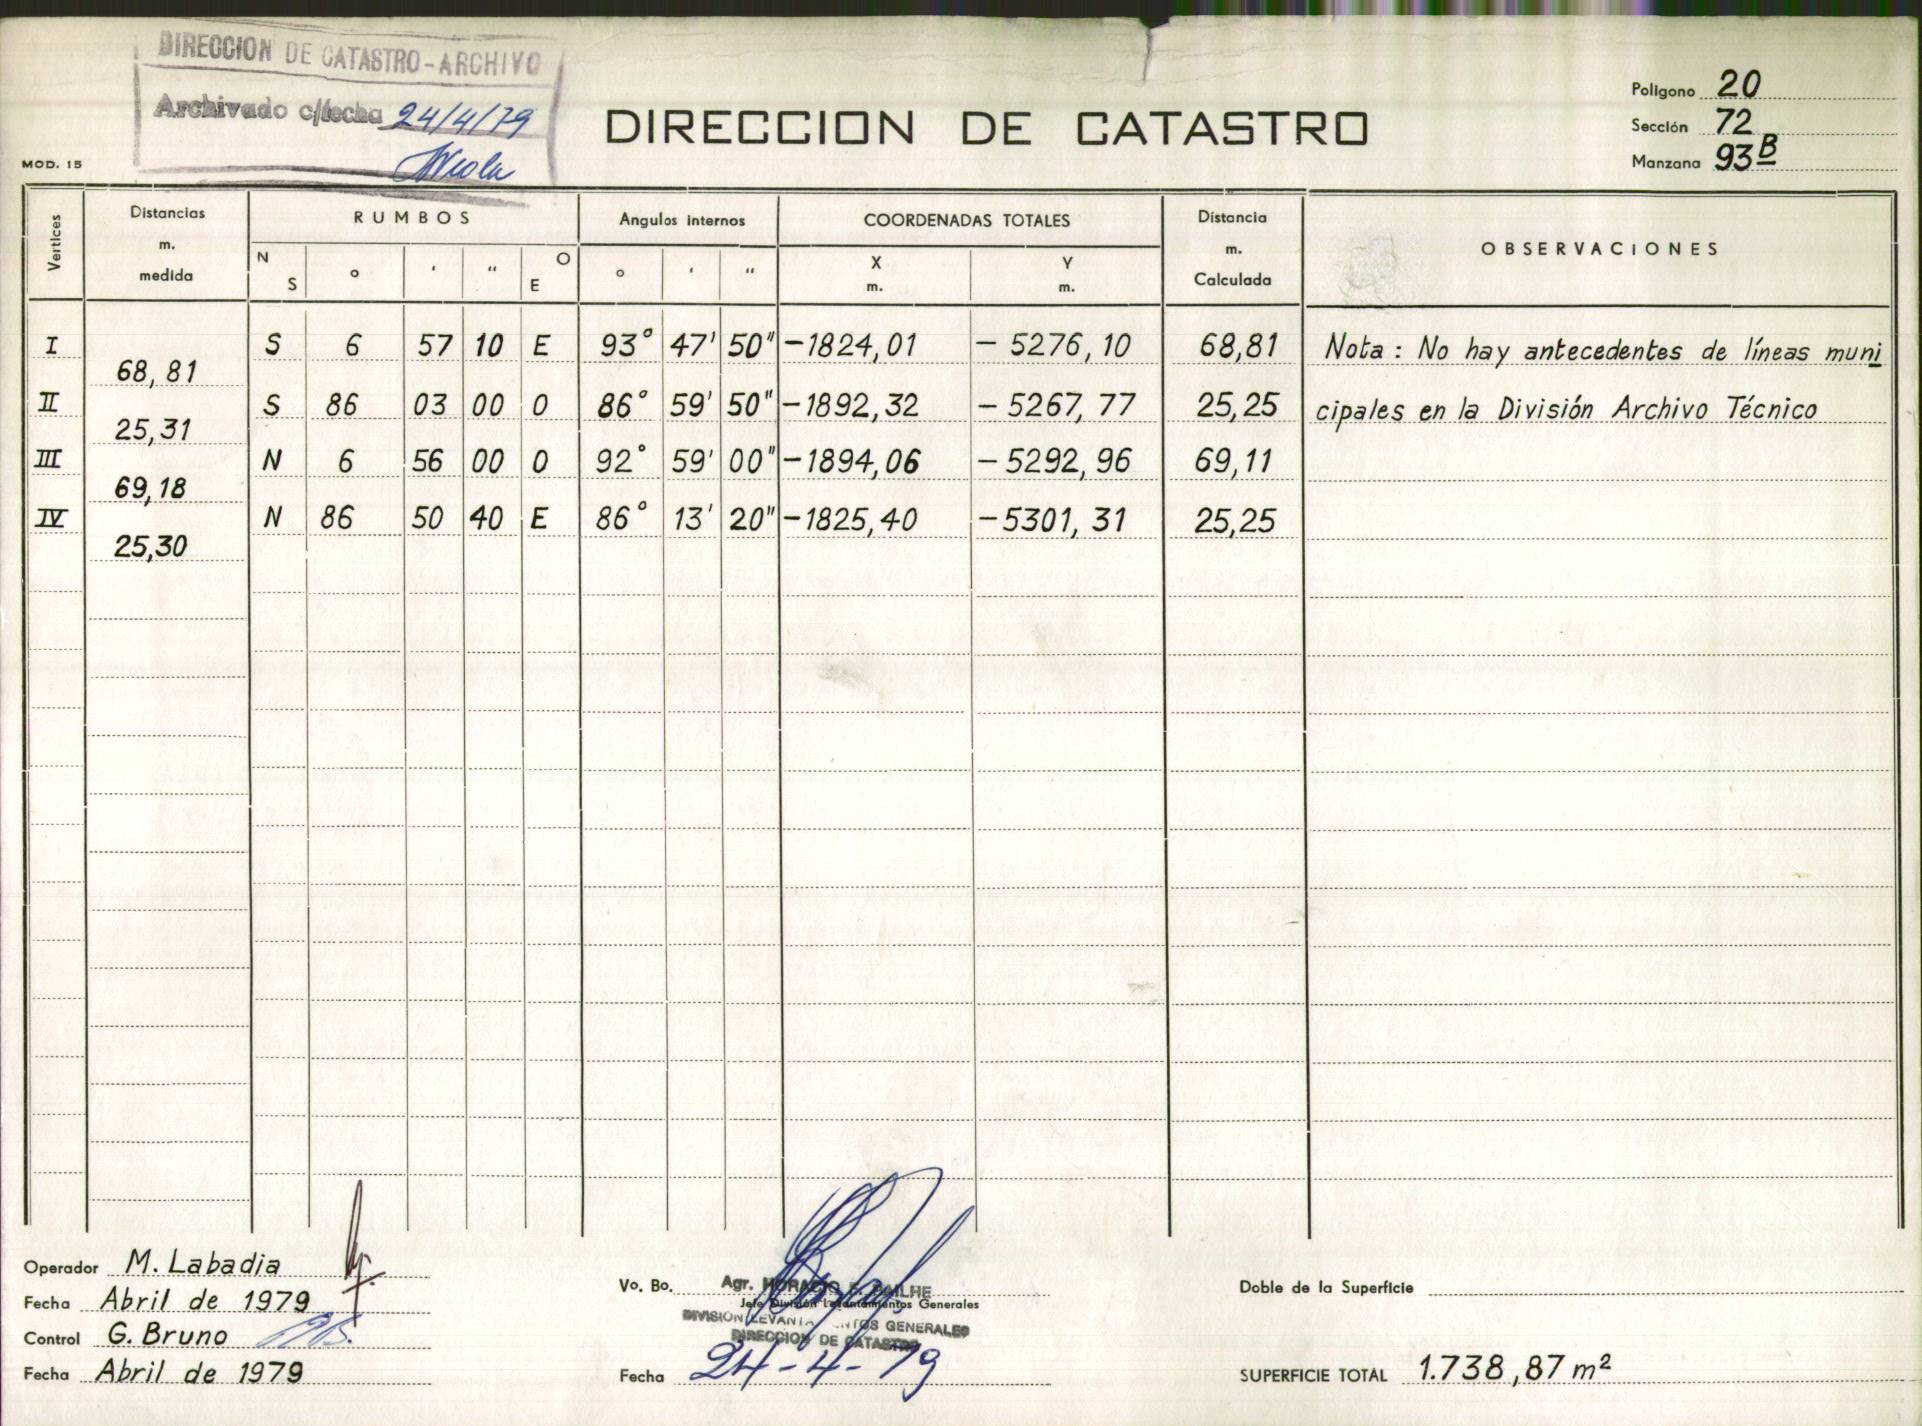 DIRECCION DE CATASTRO - ARCHIVO
Archivado c/fecha 24/4/79
DIRECCION DE CATASTRO
Polígono 20
Sección 72
Manzana 93 B
MOD. 15
Vertices Distancias m. medida RUMBOS N S ° ' " O E Angulos internos ° ' " COORDENADAS TOTALES X m. Y m. Distancia m. Calculada OBSERVACIONES
I S 6 57 10 E 93° 47' 50" -1824,01 - 5276,10 68,81 Nota : No hay antecedentes de líneas muni
68,81
II S 86 03 00 O 86° 59' 50" -1892,32 - 5267,77 25,25 cipales en la División Archivo Técnico
25,31
III N 6 56 00 O 92° 59' 00" -1894,06 - 5292,96 69,11
69,18
IV N 86 50 40 E 86° 13' 20" -1825,40 -5301,31 25,25
25,30
Operador M. Labadia
Fecha Abril de 1979
Control G. Bruno
Fecha Abril de 1979
Vo. Bo. Agr. HORACIO
Jefe División Levantamientos Generales
DIVISION LEVANTAMIENTOS GENERALES
DIRECCION DE CATASTRO
Fecha 24-4-79
Doble de la Superficie
SUPERFICIE TOTAL 1.738,87 m²